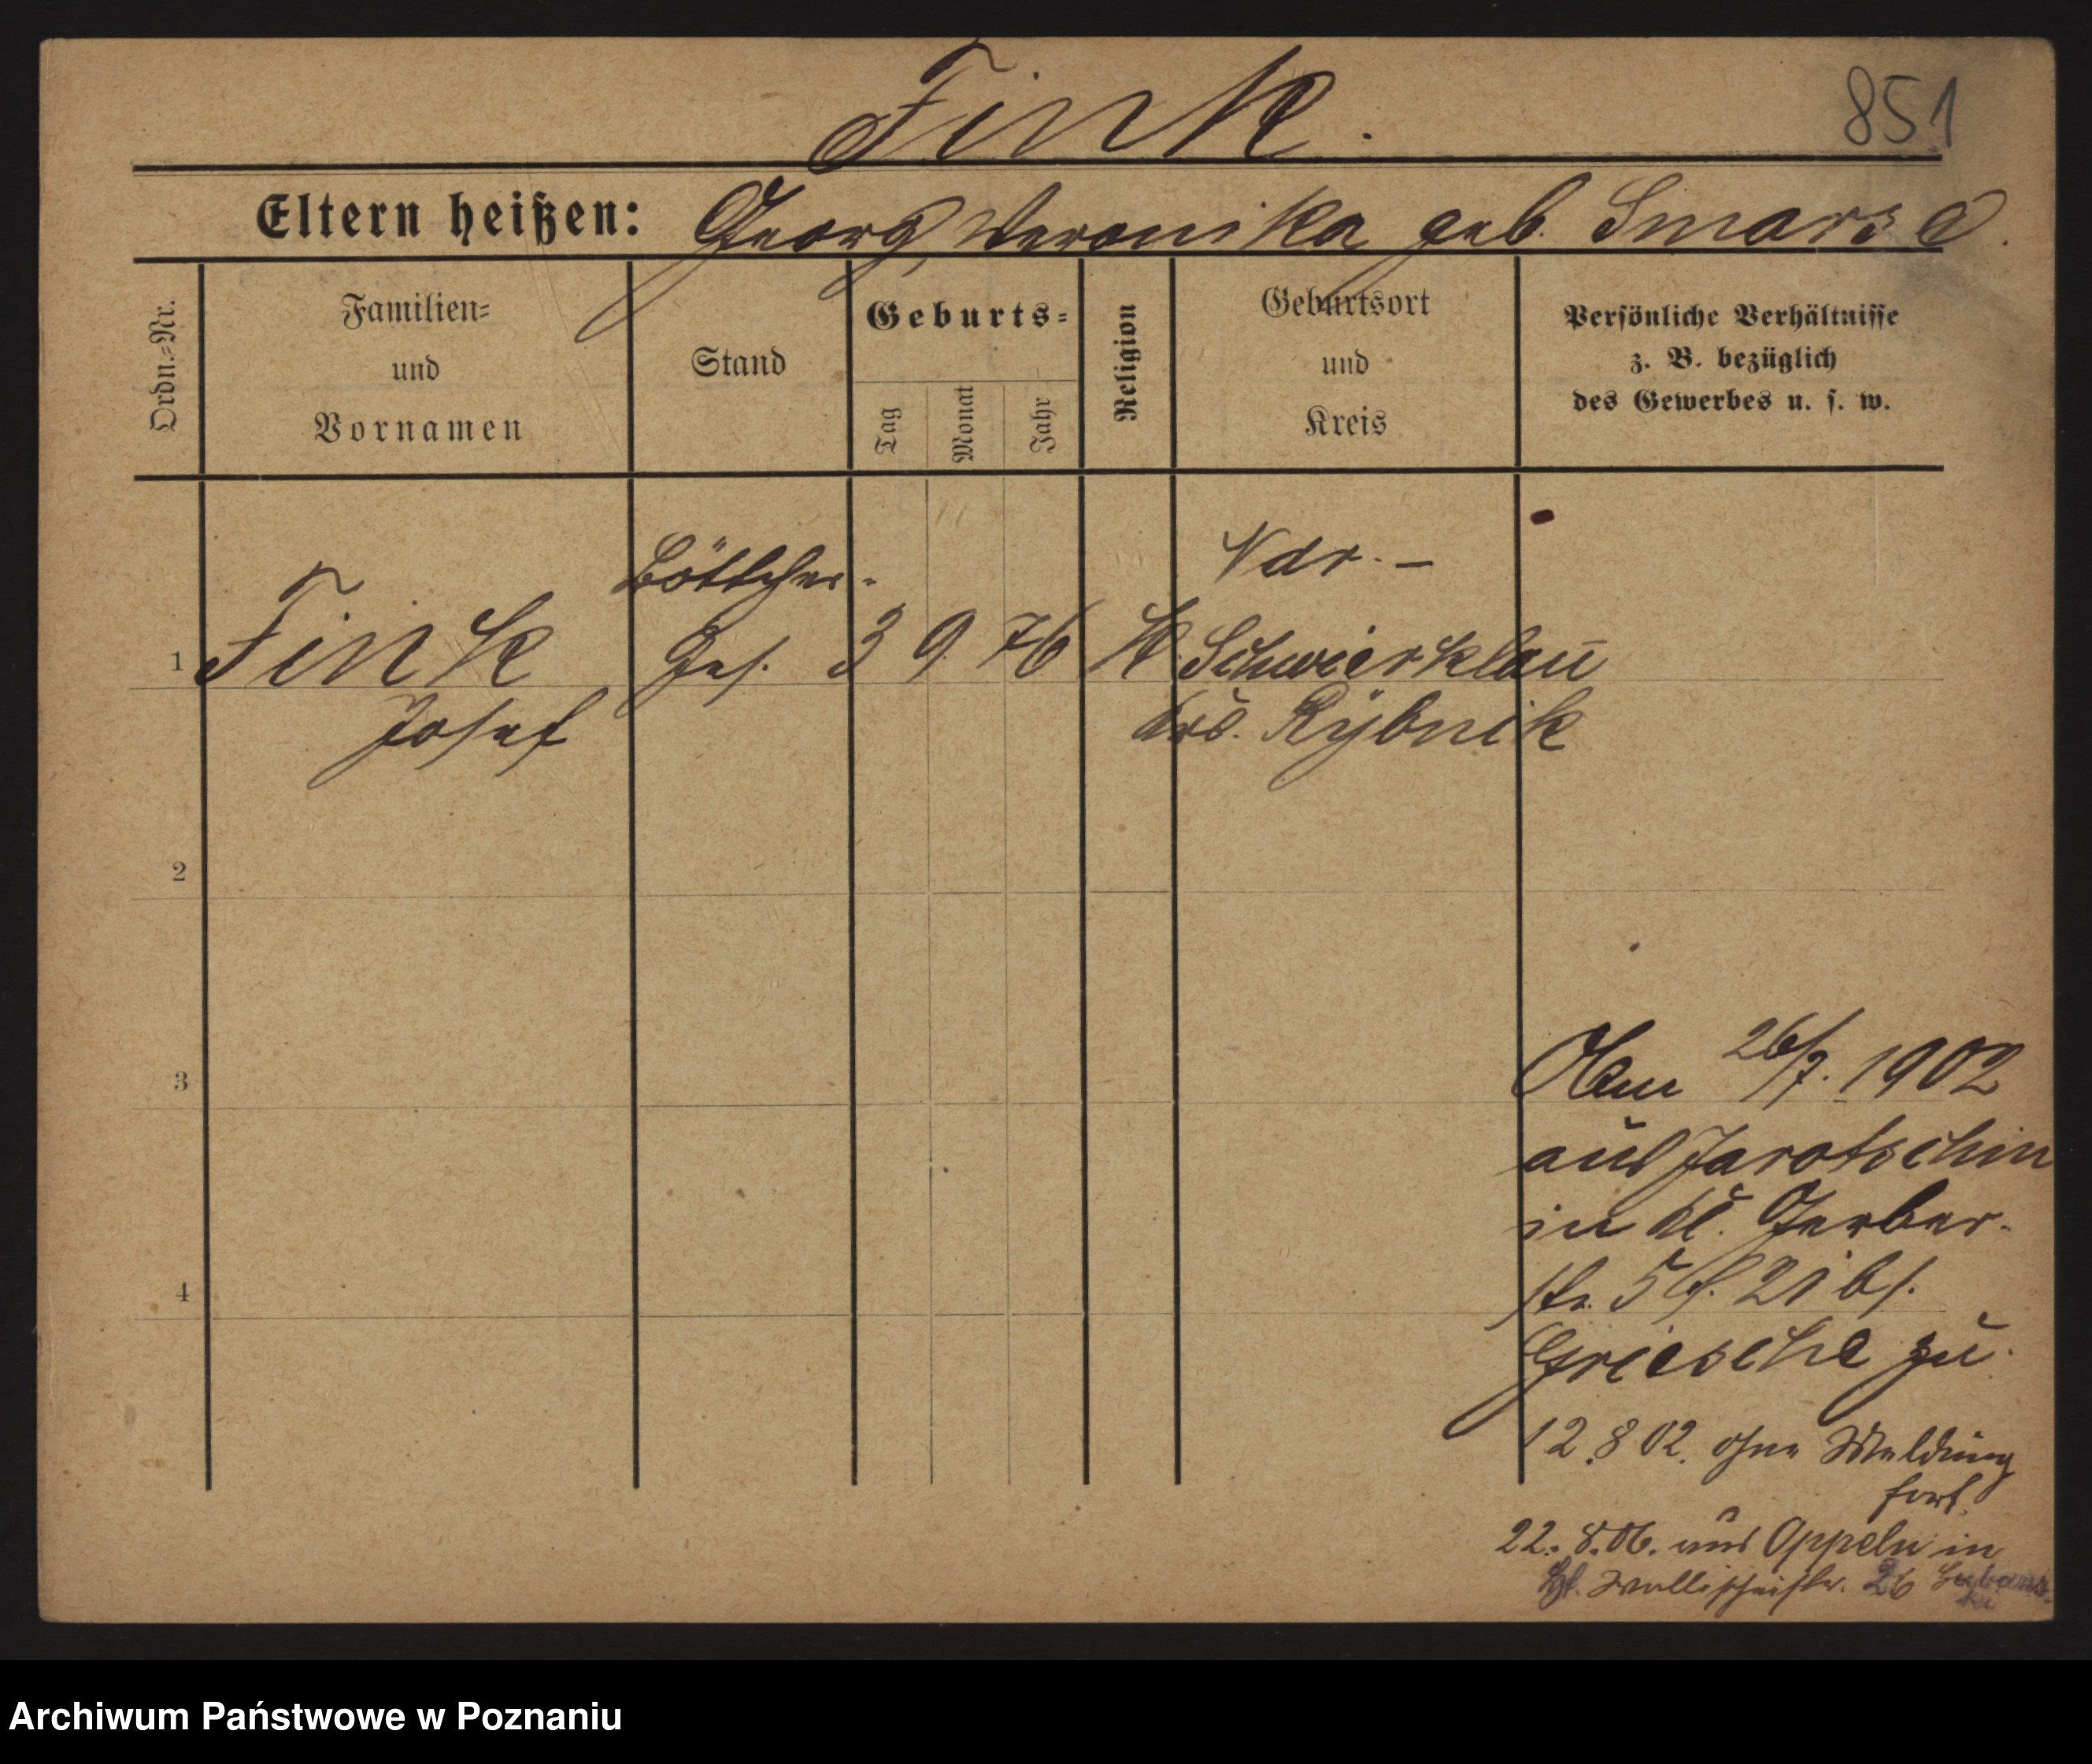 Fink.
851
Eltern heißen: Georg, Veronika geb. Smarse.
Ordn.=Nr.
Familien=
und
Vornamen
Stand
Geburts=
Tag
Monat
Jahr
Religion
Geburtsort
und
Kreis
Persönliche Verhältnisse
z. B. bezüglich
des Gewerbes u. s. w.
Böttcher-
Ndr. –
1 Fink Ges. 3 9. 76 K. Schwierklau
Josef Krs. Rybnik
2
3
4
Am 26/7. 1902
aus Jarotschin
in kl. Gerber-
str. 5 21 bs.
Griesche zu.
12.8 02. ohne Meldung
fort.
22. 8. 06. aus Oppeln in
Wallischeistr. 26
Archiwum Państwowe w Poznaniu